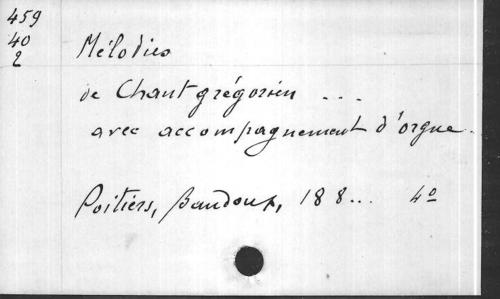 459
40
2
Mélodies
de Chant grégorien ...
avec accompagnement d'orgue.
Poitiers, Baudoux, 188... 4º